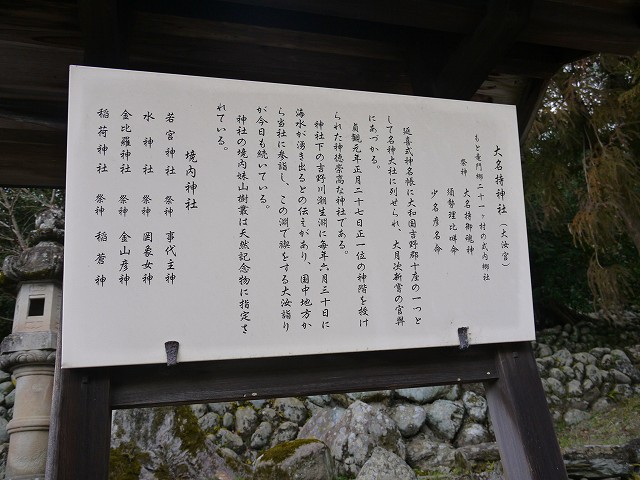 大名持神社（大汝宮）
もと竜門郷二十一ヶ村の式内郷社
祭神　大名持御魂神
須勢理比咩命
少名彦名命
延喜式神名帳に大和国吉野郡十座の一つと
して名神大社に列せられ、大月次新嘗の官幣
にあづかる。
貞観元年正月二十七日正一位の神階を授け
られた神徳崇高な神社である。
神社下の吉野川潮生淵に毎年六月三十日に
海水が湧き出るとの伝えがあり、国中地方か
ら当社に参詣し、この淵で禊をする大汝詣り
が今日も続いている。
神社の境内妹山樹叢は天然記念物に指定さ
れている。
境内神社
若宮神社　祭神　事代主神
水神社　祭神　罔象女神
金比羅神社　祭神　金山彦神
稲荷神社　祭神　稲蒼神